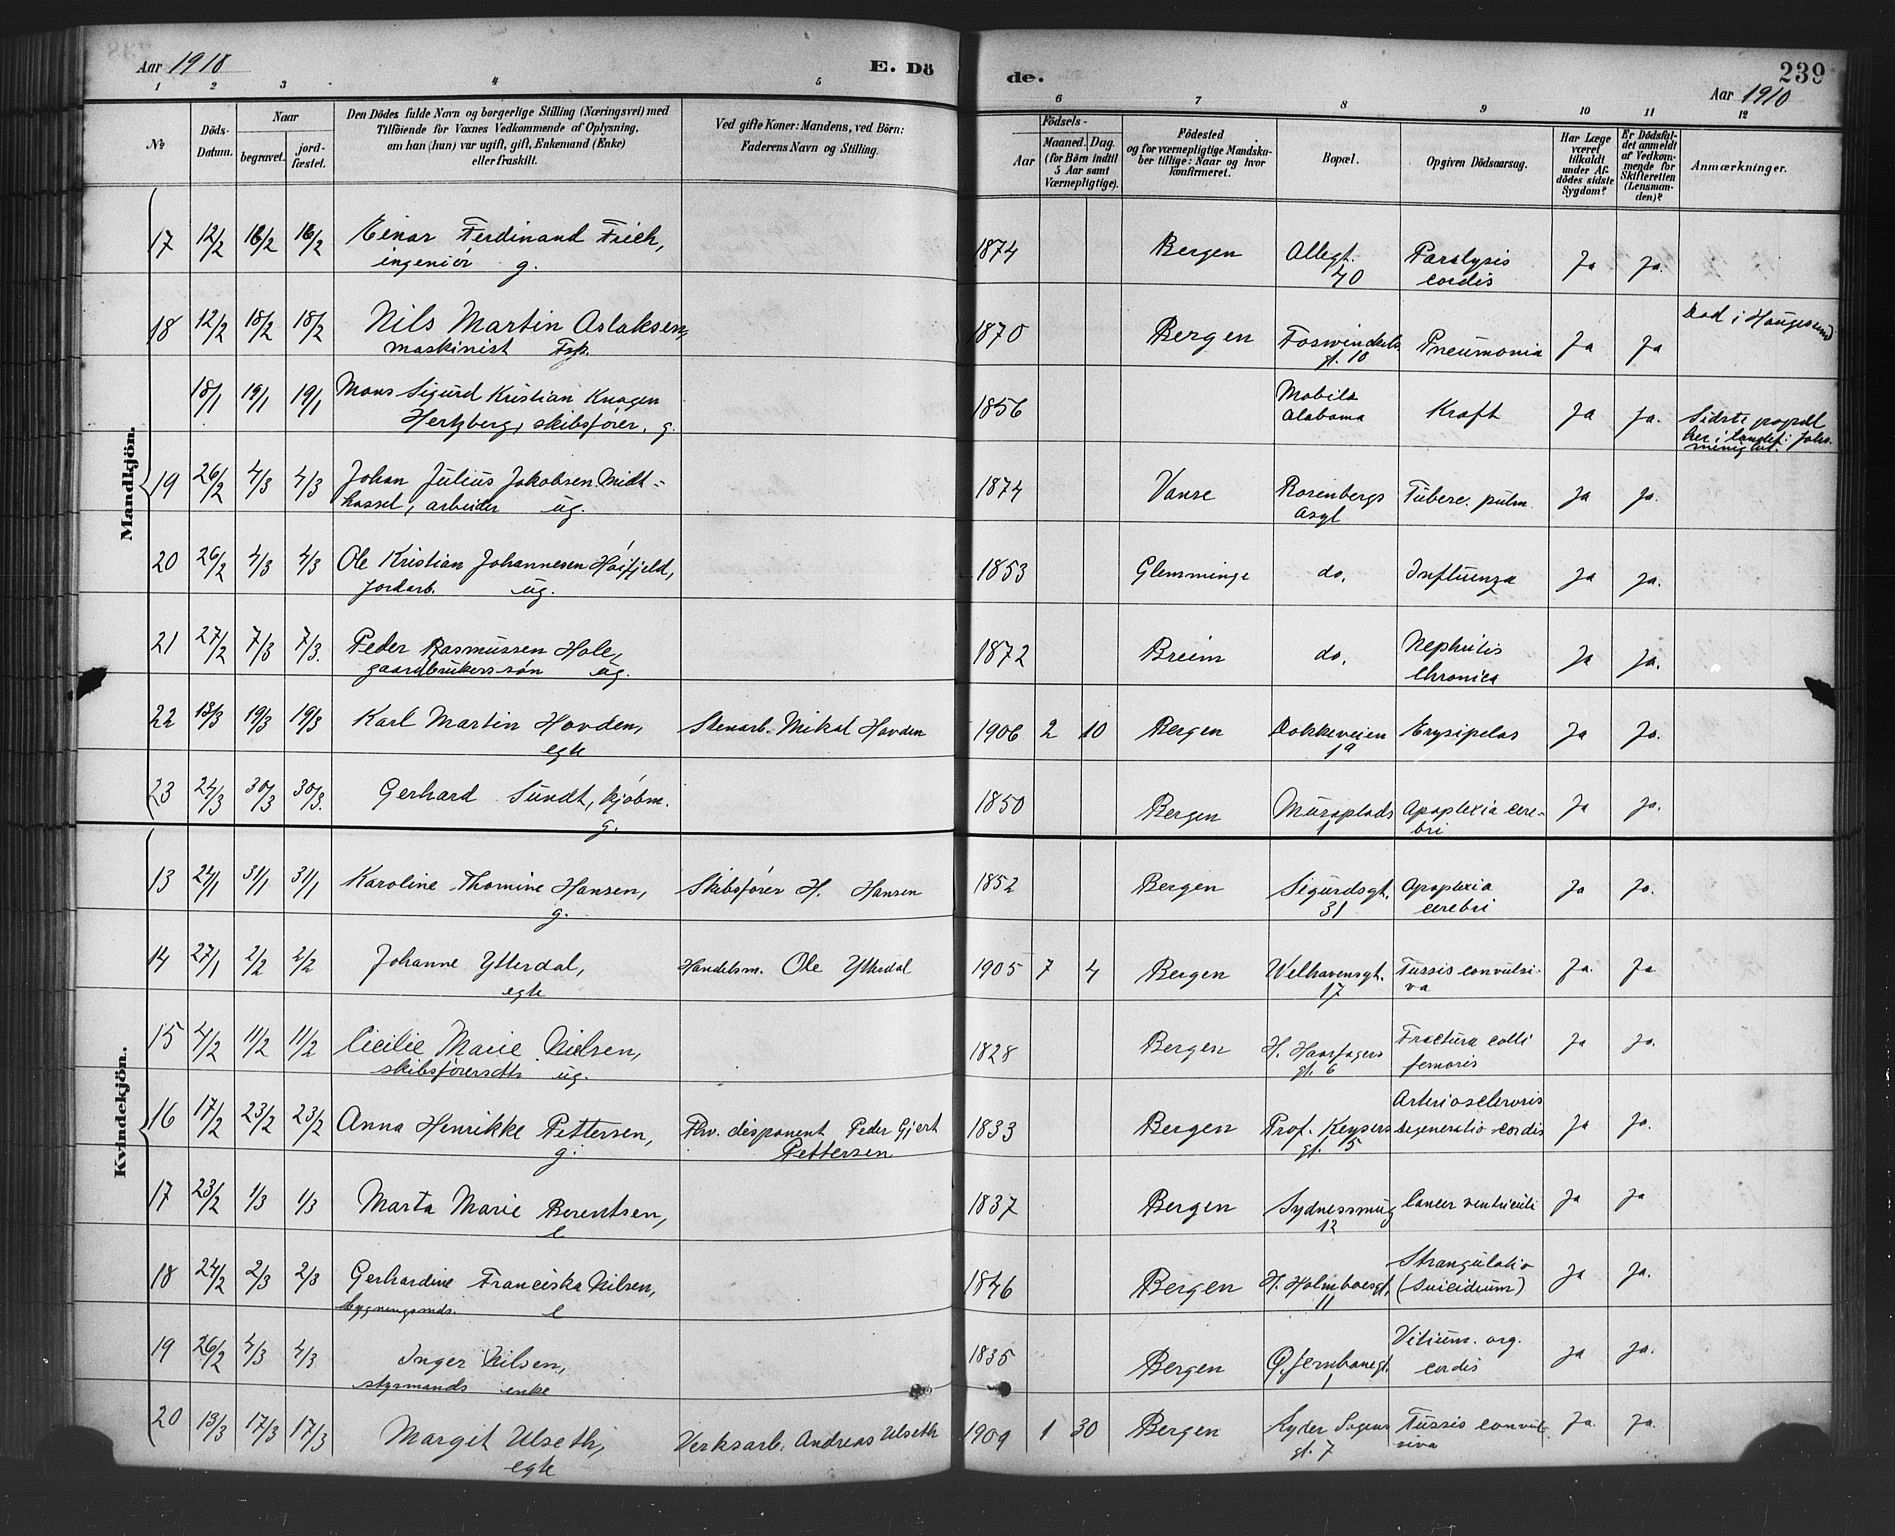 Aar 1910
E. Dö
de.
239
Aar 1910
1 2 3 4 5 6 7 8 9 10 11 12
No
Döds-Datum.
Naar
begravet.
jord-fæstet.
Den Dödes fulde Navn og borgerlige Stilling (Næringsvei) med
Tilföiende for Voxnes Vedkommende af Oplysning,
om han (hun) var ugift, gift, Enkemand (Enke)
eller fraskilt.
Ved gifte Koner: Mandens, ved Börn:
Faderens Navn og Stilling.
Födsels-
Aar
Maaned. Dag.
(for Börn indtil
5 Aar samt
Værnepligtige).
Födested
og for værnepligtige Mandska-
ber tillige: Naar og hvor
konfirmeret.
Bopæl.
Opgiven Dödsaarsag.
Har Læge
været
tilkaldt
under Af-
dödes sidste
Sygdom?
Er Dödsfal-
det anmeldt
af Vedkom-
mende for
Skifteretten
(Lensman-
den)?
Anmærkninger.
Mandkjön.
17 12/2 16/2 16/2 Einar Ferdinand Frich, 1874 Bergen Allegt. Paralysis Ja Ja.
ingeniör g. 40 cordis
18 12/2 18/2 18/2 Nils Martin Aslaksen, 1870 Bergen Foswinckels Pneumonia Ja Ja Död i Haugesund
maskinist Fsk. gt. 18
18/1 19/1 19/1 Mons Sigurd Kristian Knagen 1856 Mobile Kræft Ja Ja. Sidste
Hertzberg, skibsfører, g. Alabama her i landet:
19 26/2 4/3 4/3 Johan Julius Jakobsen Midt- 1874 Vanse Rosenbergs Tuberc. pulm. Ja Ja.
hassel, arbeider ug. Asyl
20 26/2 4/3 4/3 Ole Kristian Johannesen Höifjeld, 1853 Glemminge do. Influenza Ja Ja.
jordarb. ug.
21 27/2 7/3 7/3. Peder Rasmussen Hole, 1872 Breim do. Nephritis Ja Ja.
gaardbrukerssøn ug. Chronica
22 13/3 19/3 19/3 Karl Martin Hovden, Stenarb. Mikal Hovden 1906 2 10 Bergen Dokkeveien Erysipelas Ja Ja.
egte 1a
23 24/3 30/3 30/3. Gerhard Sundt, kjöbm. 1850 Bergen Muraplads Apoplexia cere- Ja Ja.
g. 1 bri
Kvindekjön.
13 24/1 31/1 31/1 Karoline Thomine Hansen, Skibsfører H. Hansen 1852 Bergen Sigurdsgt. Apoplexia Ja Ja.
g. 31 cerebri
14 27/1 2/2 2/2 Johanne Ytterdal, Handelsm. Ole Ytterdal 1905 7 4 Bergen Welhavensgt. Tussis convulsi- Ja. Ja
egte 17 va
15 4/2 11/2 11/2 Cicilie Marie Nielsen, 1828 Bergen H. Haarfagers Fractura colli Ja Ja.
skibsførersdtr ug. gt. 6 femoris
16 17/2 23/2 23/2 Anna Henrikke Pettersen, Fhv. disponent Peder Gjert 1833 Bergen Prof. Keysers Arteriosclerosis Ja Ja.
g. Pettersen gt. 5 degeneratio cordis
17 23/2 1/3 1/3 Marta Marie Berentsen, 1837 Bergen Sydnessmug Cancer ventriculi Ja Ja
e 12
18 24/2 2/3 2/3 Gerhardine Franciska Nilsen, 1846 Bergen H. Holmboesgt. Strangulatio Ja Ja.
bygningsmds. e 11 (Suicidium)
19 26/2 4/3 4/3 Inger Nilsen, 1835 Bergen Ø. Jernbanegt. Vitium. org. Ja Ja.
styrmands enke 1 cordis
20 13/3 17/3 17/3 Margit Ulseth, Verksarb. Andreas Ulseth 1909 1 30 Bergen Ryder Sagens Tussis convul- Ja. Ja.
egte gt. 7 siva